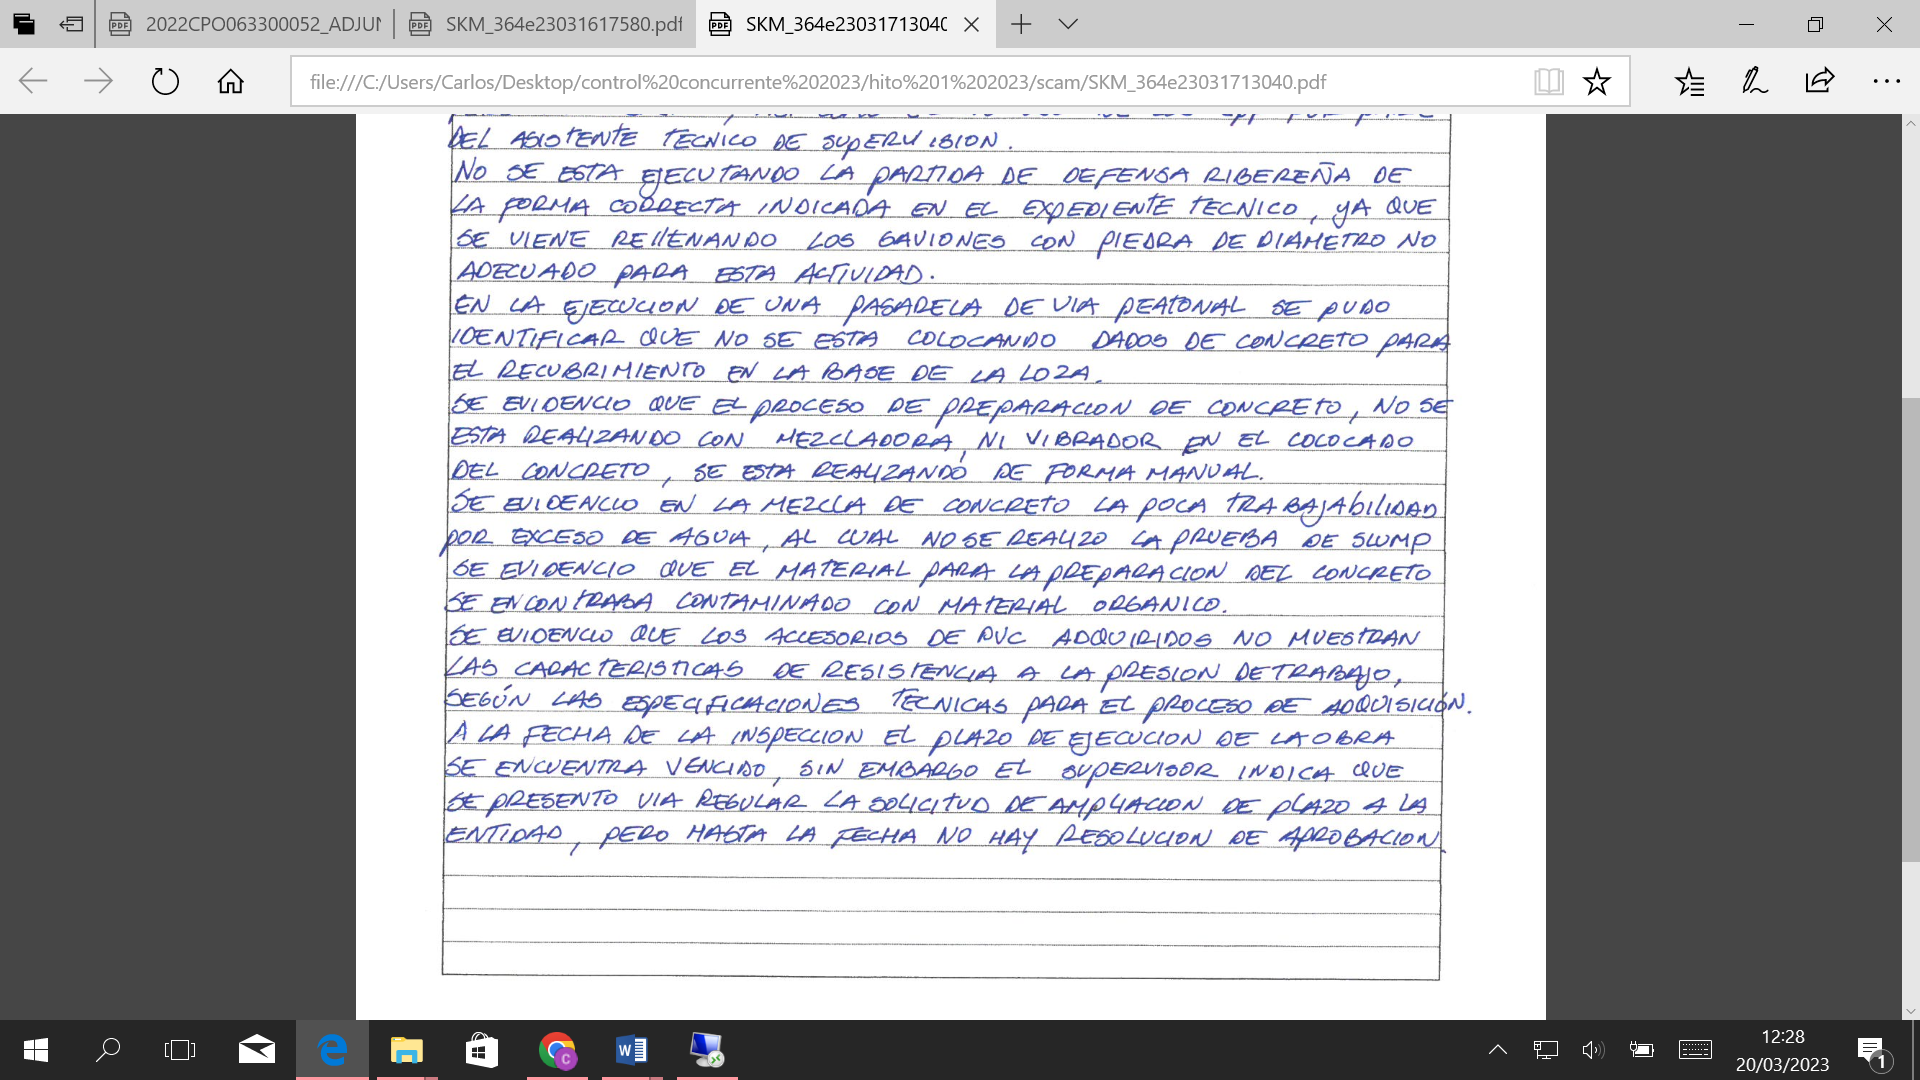 2022CPO063300052_ADJUN
SKM_364e23031617580.pdf
SKM_364e23031713040
file:///C:/Users/Carlos/Desktop/control%20concurrente%202023/hito%201%202023/scam/SKM_364e23031713040.pdf
DEL ASISTENTE TECNICO DE SUPERVISION.
NO SE ESTA EJECUTANDO LA PARTIDA DE DEFENSA RIBEREÑA DE
LA FORMA CORRECTA INDICADA EN EL EXPEDIENTE TECNICO, YA QUE
SE VIENE RELLENANDO LOS GAVIONES CON PIEDRA DE DIAMETRO NO
ADECUADO PARA ESTA ACTIVIDAD.
EN LA EJECUCION DE UNA PASARELA DE VIA PEATONAL SE PUDO
IDENTIFICAR QUE NO SE ESTA COLOCANDO DADOS DE CONCRETO PARA
EL RECUBRIMIENTO EN LA BASE DE LA LOZA.
SE EVIDENCIO QUE EL PROCESO DE PREPARACION DE CONCRETO, NO SE
ESTA REALIZANDO CON MEZCLADORA, NI VIBRADOR EN EL COLOCADO
DEL CONCRETO, SE ESTA REALIZANDO DE FORMA MANUAL.
SE EVIDENCIO EN LA MEZCLA DE CONCRETO LA POCA TRABAJABILIDAD
POR EXCESO DE AGUA, AL CUAL NO SE REALIZO LA PRUEBA DE SLUMP
SE EVIDENCIO QUE EL MATERIAL PARA LA PREPARACION DEL CONCRETO
SE ENCONTRABA CONTAMINADO CON MATERIAL ORGANICO.
SE EVIDENCIO QUE LOS ACCESORIOS DE PVC ADQUIRIDOS NO MUESTRAN
LAS CARACTERISTICAS DE RESISTENCIA A LA PRESION DE TRABAJO,
SEGÚN LAS ESPECIFICACIONES TECNICAS PARA EL PROCESO DE ADQUISICIÓN.
A LA FECHA DE LA INSPECCION EL PLAZO DE EJECUCION DE LA OBRA
SE ENCUENTRA VENCIDO, SIN EMBARGO EL SUPERVISOR INDICA QUE
SE PRESENTO VIA REGULAR LA SOLICITUD DE AMPLIACION DE PLAZO A LA
ENTIDAD, PERO HASTA LA FECHA NO HAY RESOLUCION DE APROBACION.
12:28
20/03/2023
1